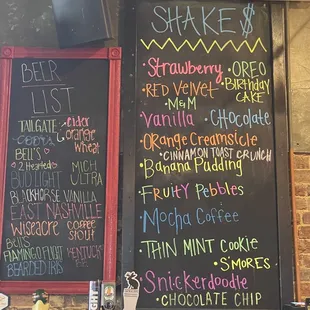 BEER
LIST
TAILGATE cider
orange
wheat
BELL'S
2 Hearted
MICH
ULTRA
BUD LIGHT
BLACKHORSE VANILLA
EAST NASHVILLE
WISEACRE COFFEE
STOUT
Bells
FLAMINGO FRUIT KENTUCKY
BEARDED IRIS
SHAKE$
Strawberry OREO
RED VELVET Birthday
CAKE
M&M
Vanilla CHOCOLATE
ORANGE CREAMSICLE
CINNAMON TOAST CRUNCH
BANANA PUDDING
FRUITY PEBBLES
MOCHA COFFEE
THIN MINT COOKIE
S'MORES
SNICKERDOODLE
CHOCOLATE CHIP